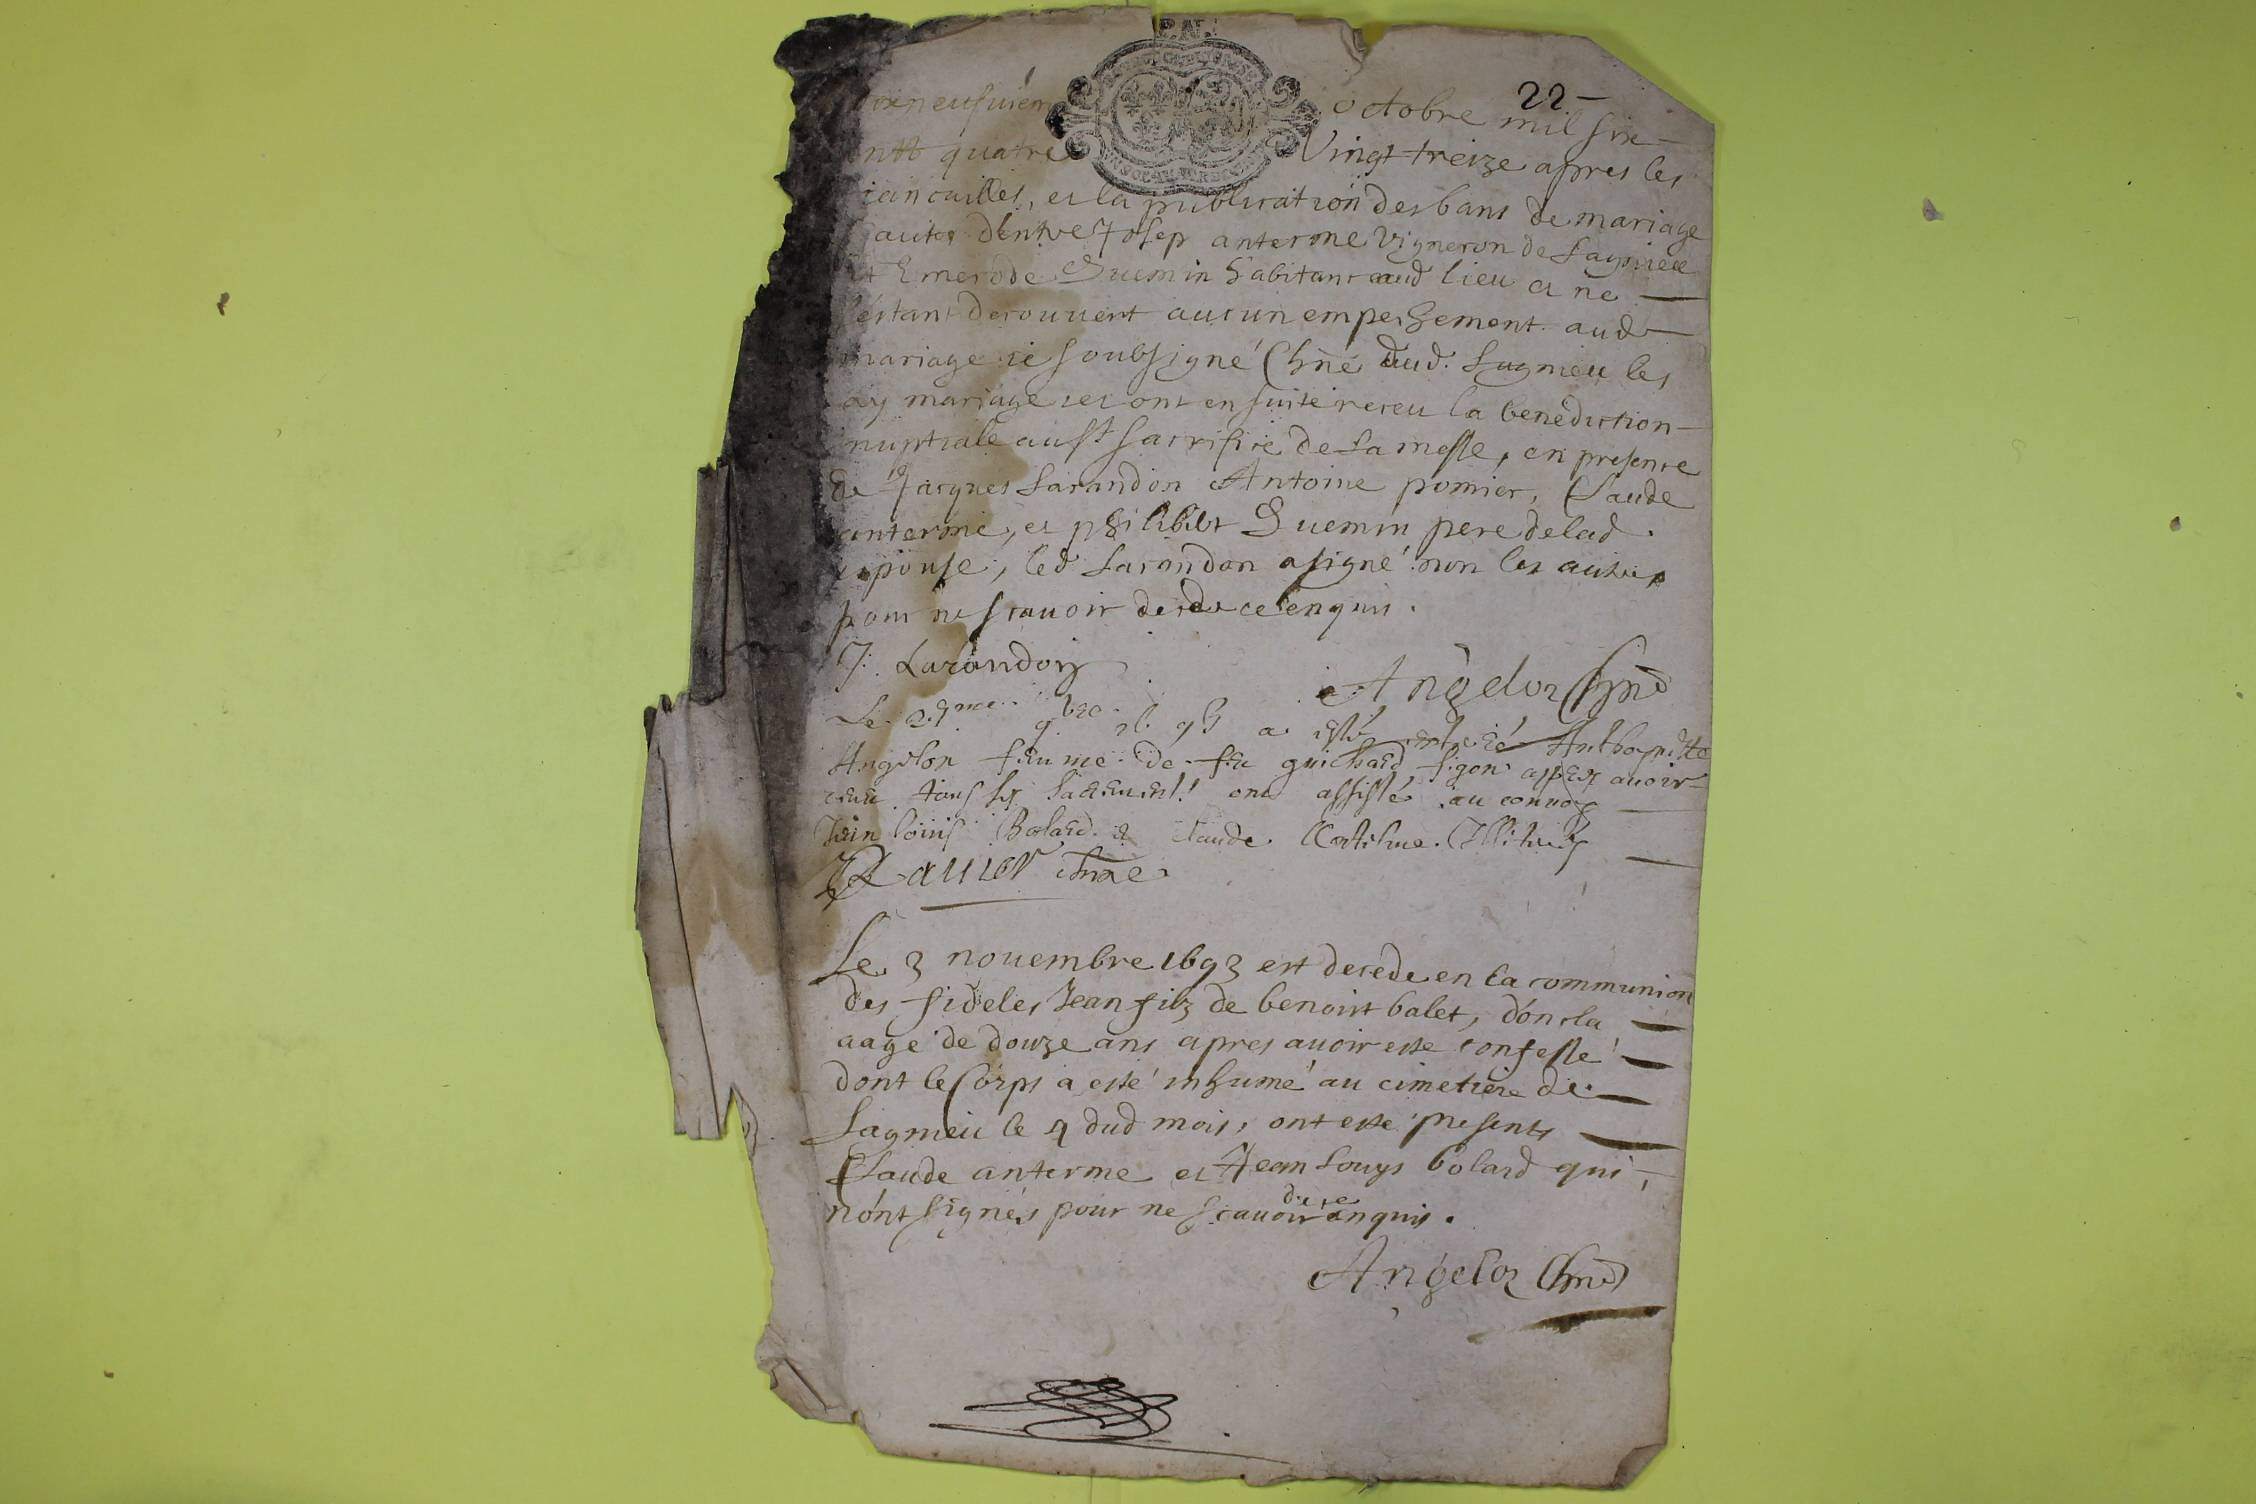 22
ixneufuiem octobre mil six
entt quatre Vingt treize apres les
iancailles, et la publication des bans de mariage
faites dentre Josep anterme Vigneron de Lagnieu
et Emerode Guemin habitant aud lieu et ne
sestant decouuert aucun empechement aud
mariage ie soubsigné Chne dud. Lagnieu les
ay mariage et ont en suite receu la benediction
nuptiale au st sacrifice de la messe, en presence
de Jacques Larandon Antoine pomier, Claude
anterme, et philibert Guemin pere de lad.
epouse, led Larandon a signé non les autres
pour ne scauoir de ce enquis.
J. Larandon
Angelot Chne
Le 9bre a esté enterré Anthoynette
Angelon femme de feu guichard figon apres auoir
receu tous les sacrements ont assisté au conuoy
Jean louis Bolard & Claude
chne
Le 3 nouembre 1693 est decede en la communion
des fideles Jean filz de benoist balet, donsla
aagé de douze ans apres auoir este confessé
dont le Corps a esté inhumé au cimetiere de
Lagnieu le 4 dud mois, ont este presents
Claude anterme et Jean Louys bolard qui
n'ont signés pour ne scauoir dece enquis.
Angelot Chne